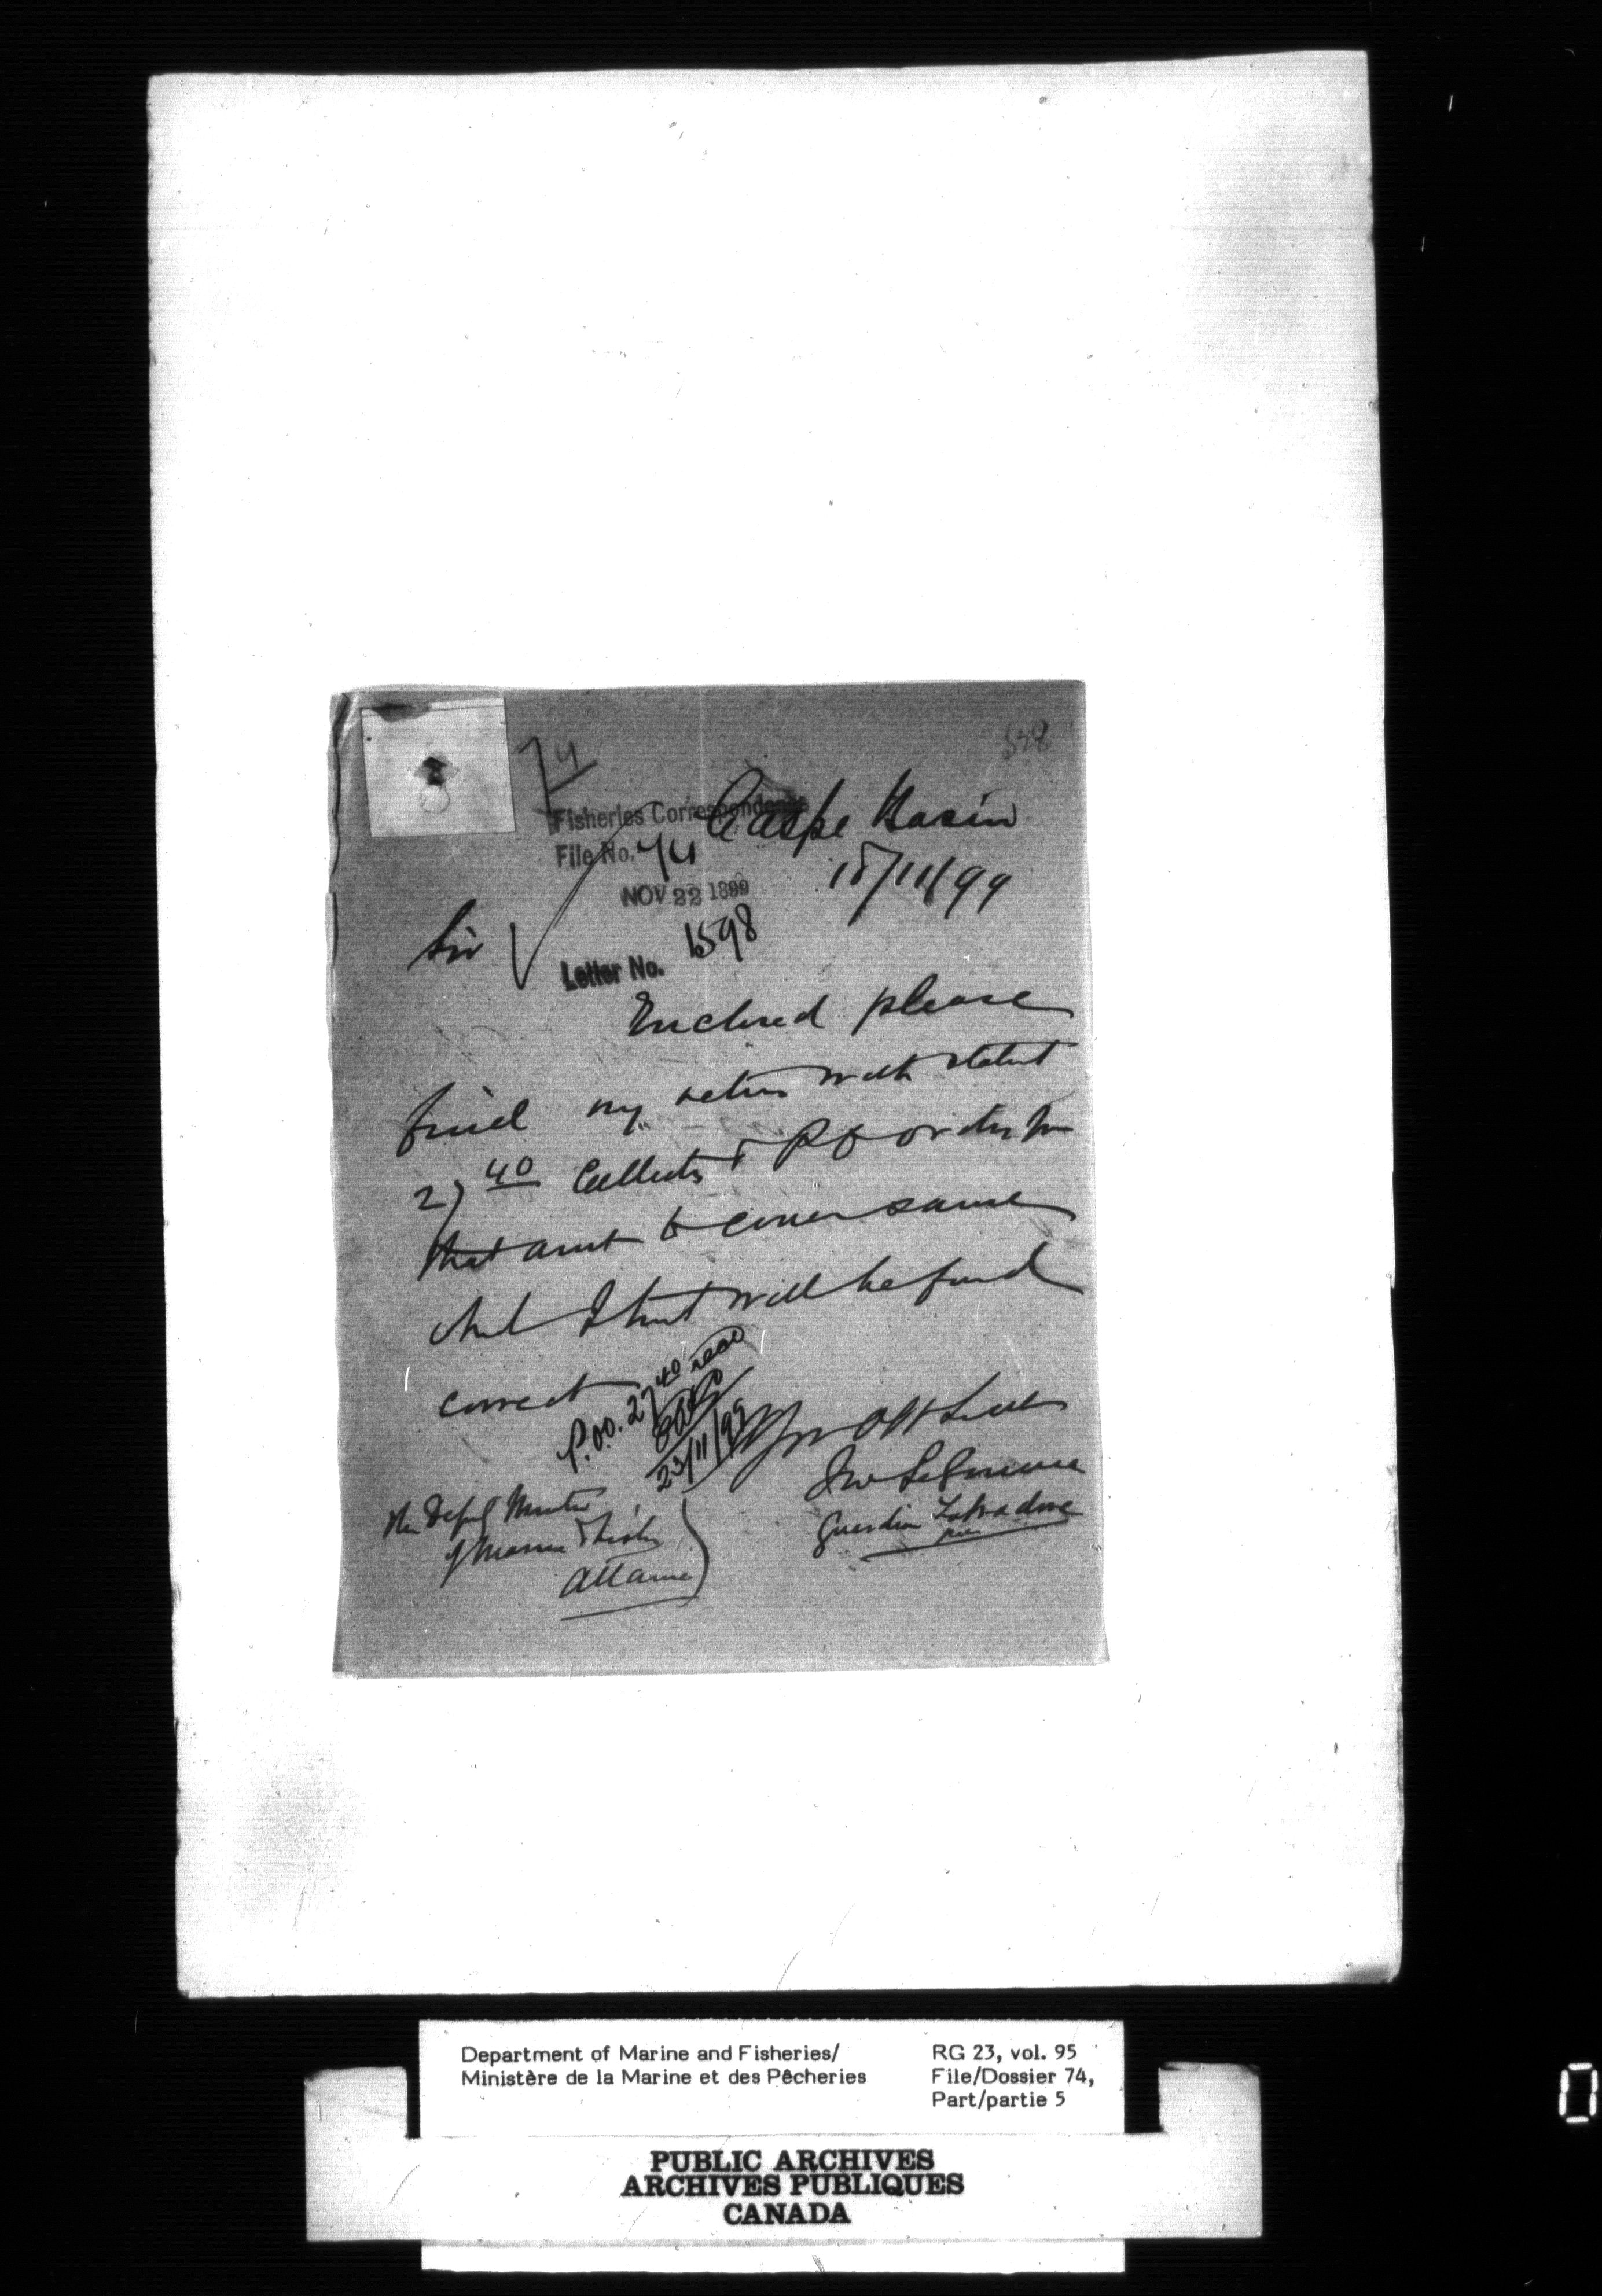 74
Fisheries Correspondence
Gaspe Basin
File No. 74
18/11/99
NOV 22 1899
Sir
Letter No. 1598
Enclosed please
find my return with statmt
27 40 Collects & P O order for
that amt to cover same
And I trust will be found
correct
P.O.O. 27 40 recd
23/11/99
Yr Obt Servt
The Deputy Minister
of Marine & Fisher
Ottawa
Guardian Labradore
Department of Marine and Fisheries/
Ministère de la Marine et des Pêcheries
RG 23, vol. 95
File/Dossier 74,
Part/partie 5
PUBLIC ARCHIVES
ARCHIVES PUBLIQUES
CANADA